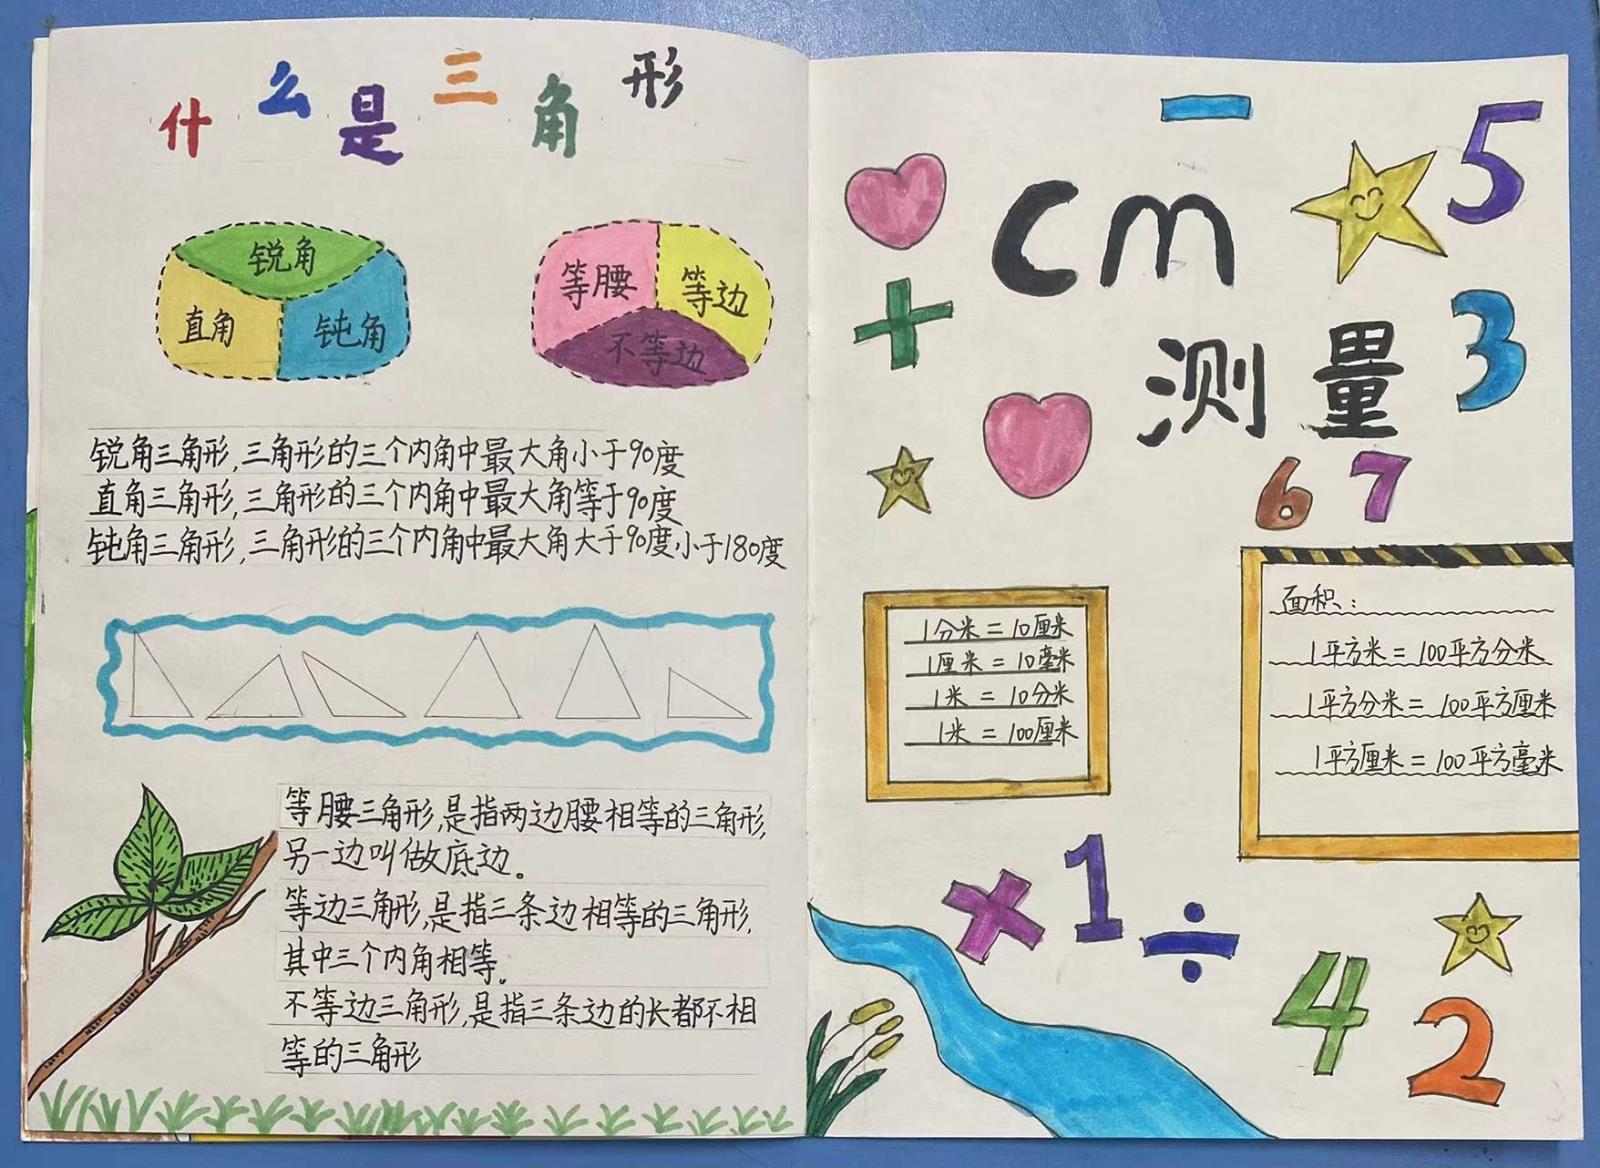 什么是三角形
锐角
直角
钝角
等腰
等边
不等边
锐角三角形,三角形的三个内角中最大角小于90度
直角三角形,三角形的三个内角中最大角等于90度
钝角三角形,三角形的三个内角中最大角大于90度小于180度
等腰三角形,是指两边腰相等的三角形,
另一边叫做底边。
等边三角形,是指三条边相等的三角形,
其中三个内角相等。
不等边三角形,是指三条边的长都不相
等的三角形
−
5
cm
+
3
测量
6 7
1分米=10厘米
1厘米=10毫米
1米=10分米
1米=100厘米
面积:
1平方米=100平方分米
1平方分米=100平方厘米
1平方厘米=100平方毫米
×
1
÷
4
2